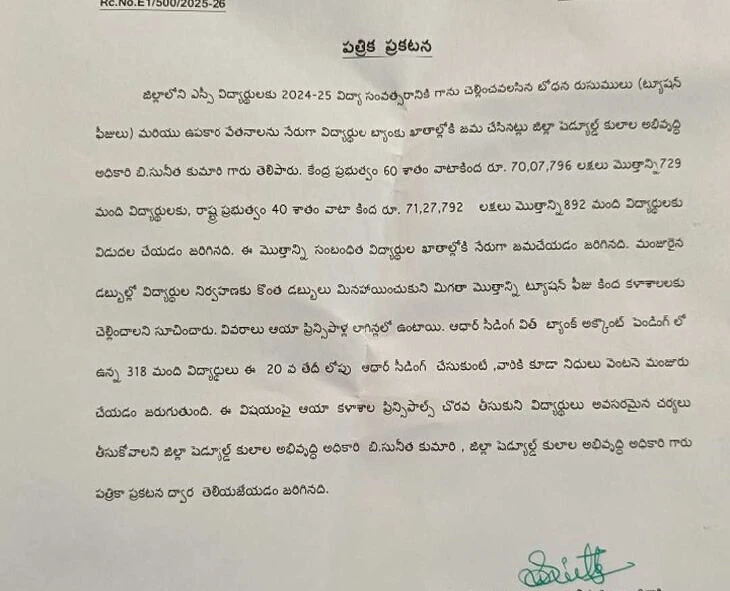 Rc.No.E1/500/2025-26
పత్రిక ప్రకటన
జిల్లాలోని ఎస్సీ విద్యార్థులకు 2024-25 విద్యా సంవత్సరానికి గాను చెల్లించవలసిన బోధన రుసుములు (ట్యూషన్
ఫీజులు) మరియు ఉపకార వేతనాలను నేరుగా విద్యార్థుల బ్యాంకు ఖాతాల్లోకి జమ చేసినట్లు జిల్లా షెడ్యూల్డ్ కులాల అభివృద్ధి
అధికారి బి.సునీత కుమారి గారు తెలిపారు. కేంద్ర ప్రభుత్వం 60 శాతం వాటాకింద రూ. 70,07,796 లక్షలు మొత్తాన్ని729
మంది విద్యార్థులకు, రాష్ట్ర ప్రభుత్వం 40 శాతం వాటా కింద రూ. 71,27,792 లక్షలు మొత్తాన్ని892 మంది విద్యార్థులకు
విడుదల చేయడం జరిగినది. ఈ మొత్తాన్ని సంబంధిత విద్యార్థుల ఖాతాల్లోకి నేరుగా జమచేయడం జరిగినది. మంజూరైన
డబ్బుల్లో విద్యార్థుల నిర్వహణకు కొంత డబ్బులు మినహాయించుకుని మిగతా మొత్తాన్ని ట్యూషన్ ఫీజు కింద కళాశాలలకు
చెల్లించాలని సూచించారు. వివరాలు ఆయా ప్రిన్సిపాళ్ల లాగిన్లలో ఉంటాయి. ఆధార్ సీడింగ్ విత్ బ్యాంక్ అక్కౌంట్ పెండింగ్ లో
ఉన్న 318 మంది విద్యార్థులు ఈ 20 వ తేదీ లోపు ఆధార్ సీడింగ్ చేసుకుంటే ,వారికి కూడా నిధులు వెంటనె మంజూరు
చేయడం జరుగుతుంది. ఈ విషయంపై ఆయా కళాశాల ప్రిన్సిపాల్స్ చొరవ తీసుకుని విద్యార్థులు అవసరమైన చర్యలు
తీసుకోవాలని జిల్లా షెడ్యూల్డ్ కులాల అభివృద్ధి అధికారి బి.సునీత కుమారి , జిల్లా షెడ్యూల్డ్ కులాల అభివృద్ధి అధికారి గారు
పత్రికా ప్రకటన ద్వార తెలియజేయడం జరిగినది.